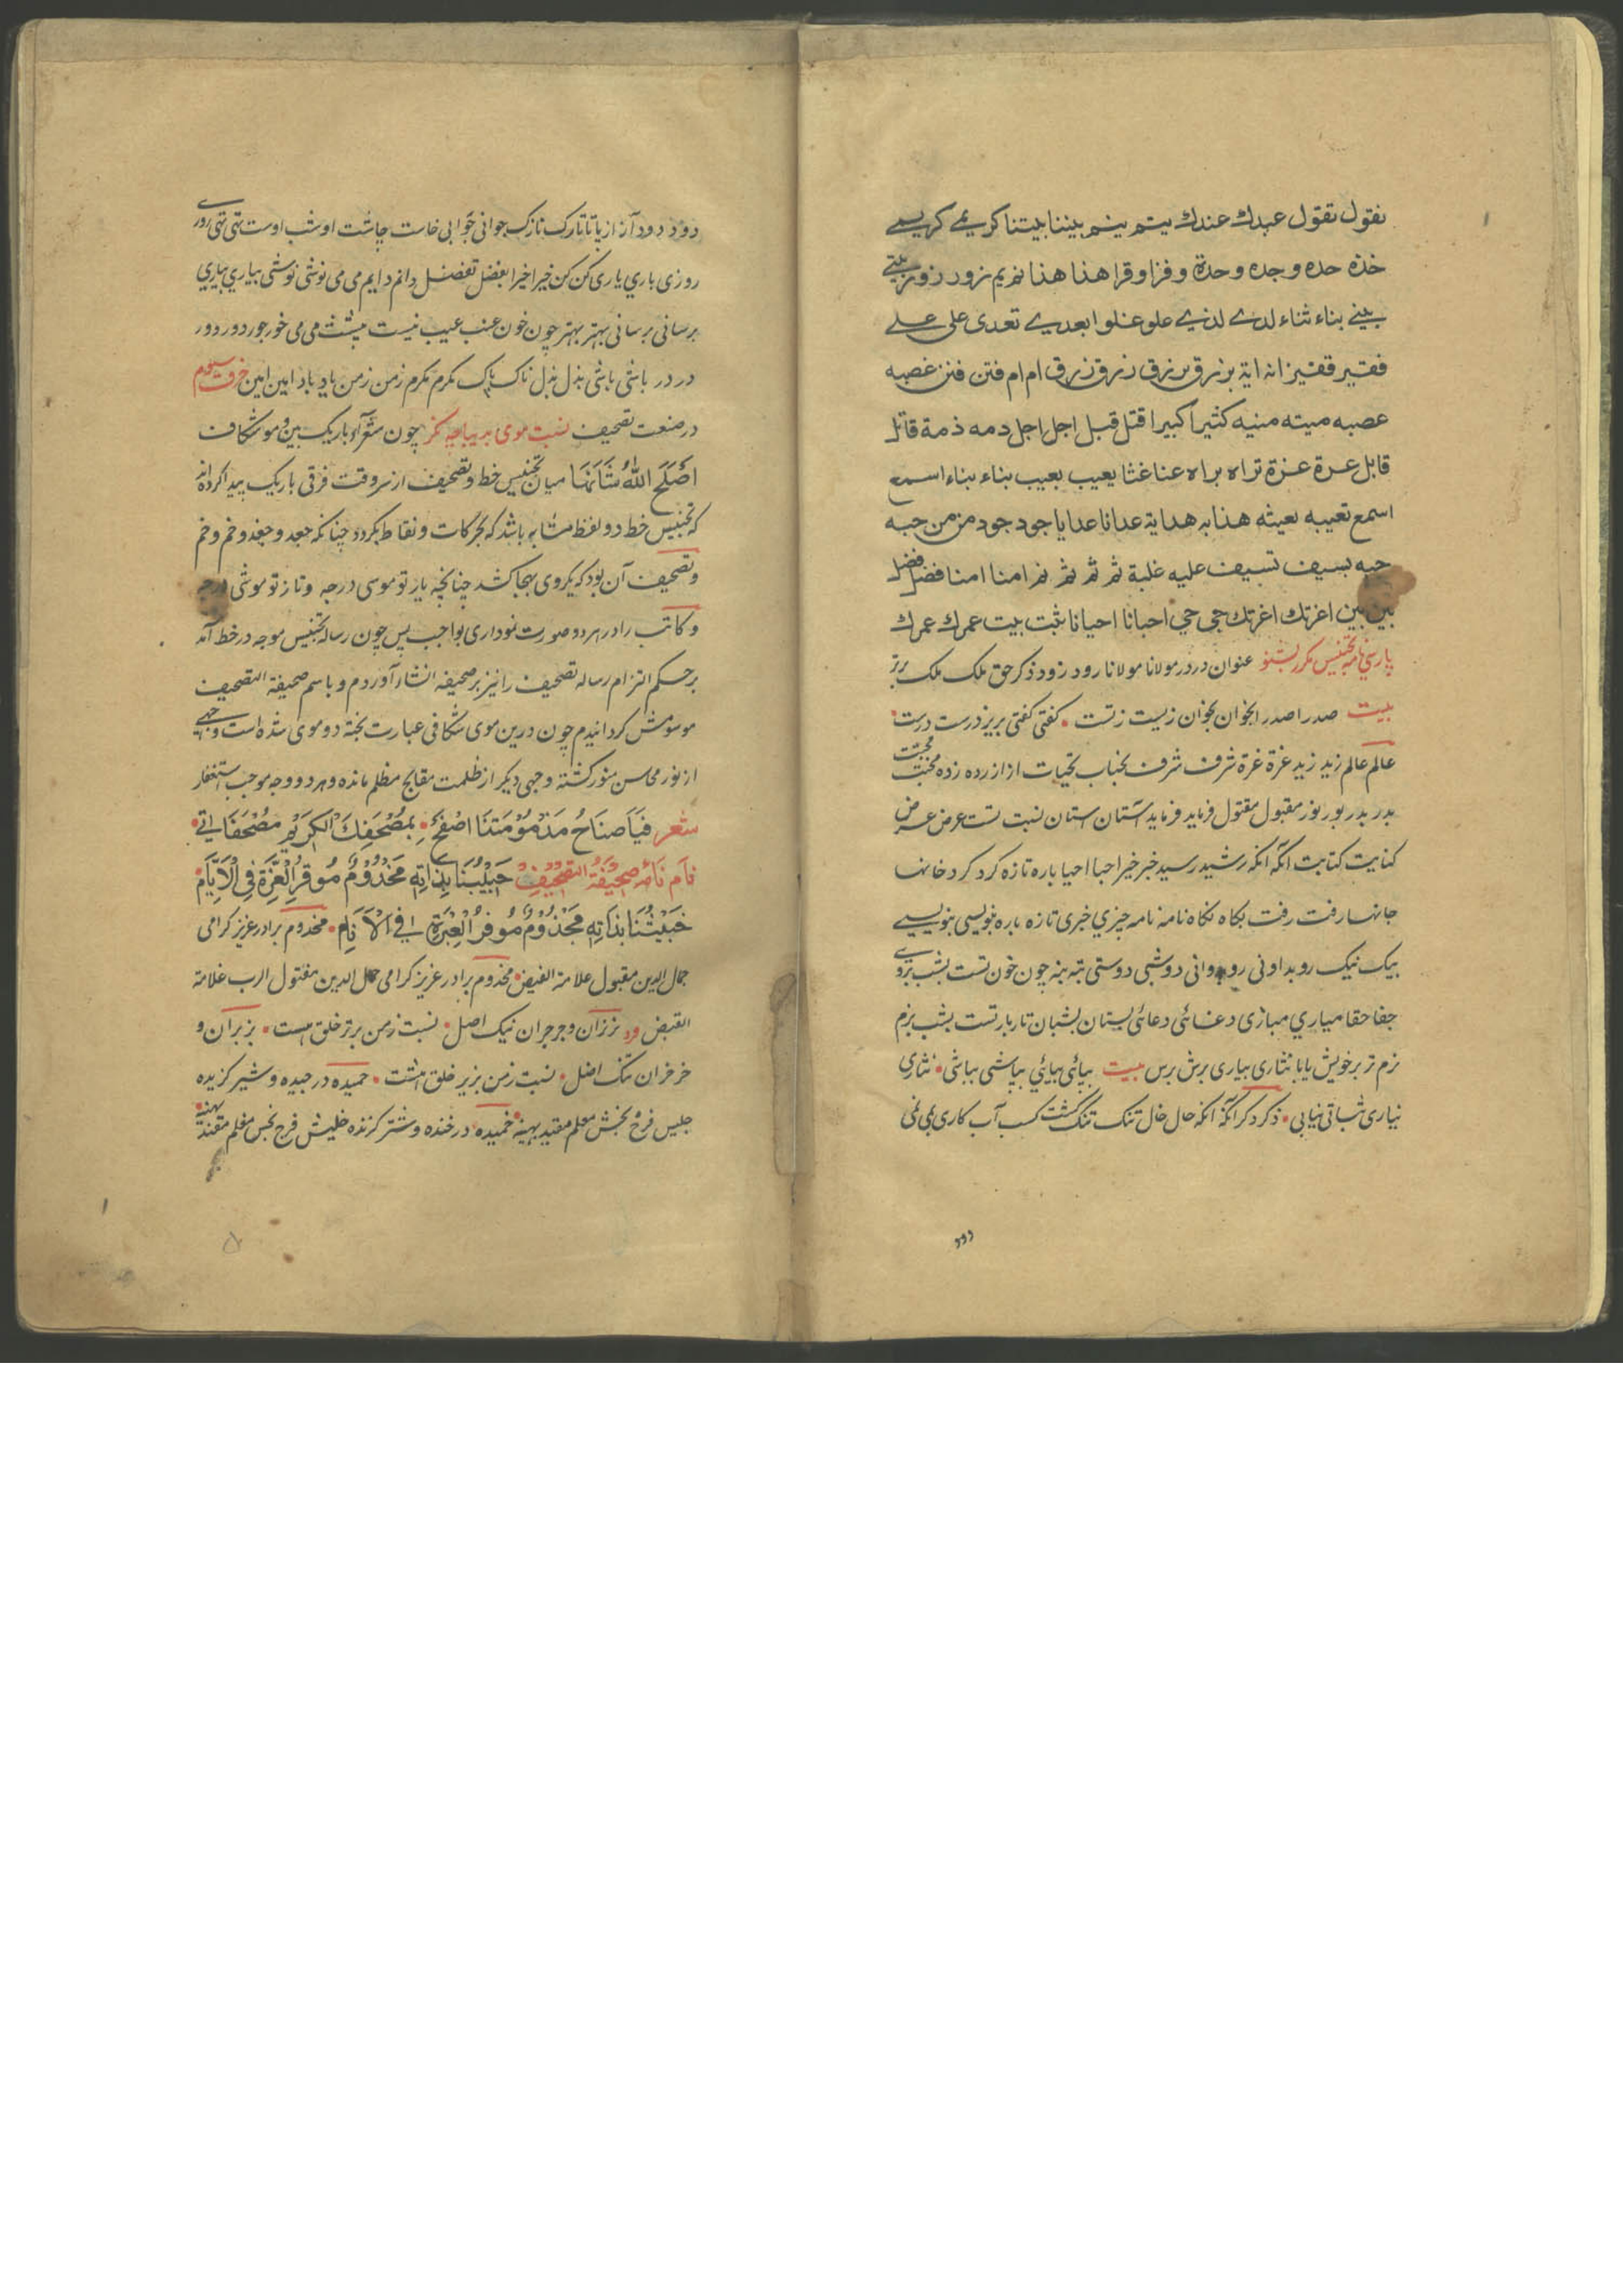 نقول تقول عبدك عندك يتم ينم بيننا بيتنا كريمي كريمي
خذه حده وجده وحدة وفزا وقرا هنا هذا نم يم نزور زور
بيني بناء ثناء لدي لذي علو غلوا بعدي تعدى على علي
فقير فقير انه اية برزق برزق ام ام فتن فنن غصبه
عصبه ميته منيه كثيرا كبيرا اقتل قبل اجل اجل دمه ذمة قاتل
قابل عرة عزة تراه براه عنا غنا يعيب بعيب بناء بناء اسمع
اسمع تعيبه بعيثه هذا به هداية عدانا عدايا جود جود من من حبه
حبه بسيف تسيف عليه غلبة ثم ثم ثم نم امنا امنا فضل فضل
بين بين اغرتك اغرتك حجي حي احبانا احيانا ثبت بيت عمرك عمرك
پارسي نامه تجنيس مكرر بشنو عنوان در در مولانا مولانا رود زود ذكر حق ملك ملك برتر
بيت صدرا صدرا بخوان بخوان زيست زتست كفتى كفتى بريز درست درست
عالم عالم زيد زيد غرة غرة شرف شرف بجناب تحيات از ازرده زده محبت محبت
بدر بدر بور نور مقبول مقتول فرمايد فرمايد آستان استان نسبت تست عرض عرض
كنايت كتابت آنكه آنكه رشيد رسيد خبر خير احبا احيا باره تازه كرد كرد خانها
جانها رفت رفت بكاه نكاه نامه نامه چيزي خبرى تازه باره بنويسى بنويسى
بيك نيك رو بداونى رو دوانى دوشى دوستى بته بنه چون خون تست بشب
جفا حقا مياري مبازى دغائى دعائى بستان بشبان تار بار تست بشب بزم
نزم تر برخويش يابا نثارى بيارى برش برس بيت بيائى بيائي بپاشى بباشى نثارى
نيارى شباتى نيابى ذكر دكر آنكه انكه حال خال تنك تنك كشت كسب آب كارى نمى نمى
دود دود آزاز يا تا تارك نازك جوانى جوابى خاست چاشت او شب اوست تهى تهى
روزى بارى يارى كن كن خير اخيرا بفضل تفضل دانم دايم مى مى نوشى نوشى بيارى بيارى
برسانى برسانى بهتر بهتر چون خون عنب عيب نيست ميتت مى مى خور خور دور دور
در در باشى باشى بذل بذل ناك پاك مكرم مكرم زمن زمن ياد باد امين امين حرف سوم
در صنعت تصحيف نسبت موى بديباچه كز چون شعراء باريك بين و موشكاف
اصلح الله شأنها ميان تجنيس خط و تصحيف از سر وقت فرقى باريك پيدا كرده اند
كه تجنيس خط دو لفظ مشابه باشد كه بحركات و نقاط بكردد چنانكه جعد و جغد و خم و خم
و تصحيف آن بود كه يكروى بهجا كشد چنانچه يار تو موسى درجه و تاز تو موشى درجه
و كاتب را در هر دو صورت نودارى بواجب پس چون رساله تجنيس موجه در خط آمد
بر حكم التزام رساله تصحيف را نيز بر صحيفه انشاء آوردم و باسم صحيفة التصحيف
موسومش كردانيدم چون درين موى شكافى عبارت بخته دو موى شده است وجهى
از نور محاسن منور كشته و جهى ديكر از ظلمت مقابح مظلم مانده و هر دو وجه موجب استغفار
شعر فيا صناح مذموم متنا اصفح بمصحفك الكريم مصحفاتي
نام نامه صحيفة التصحيف حبيبنا بذاته مخدوم موقر العزة في الايام
خبيثنا بذاته مجذوم موفر العبرة في الانام مخدوم برادر عزيز كرامى
جمال الدين مقبول علامة الفيض مخدوم برادر عزيز كرامى حمال الدين مقتول الرب غلامة
القبض ورد نزران و جرجران نيك اصل نسبت زمن برتر خلق هست بزبران و
خرخران تنك اضل نسبت زمن بزير خلق است حميده درجيده و شير كزيده
جليس فرخ بخش معلم مقيد بهينه خميده درخنده و شتر كزنده خليش فرج نجس مغلم